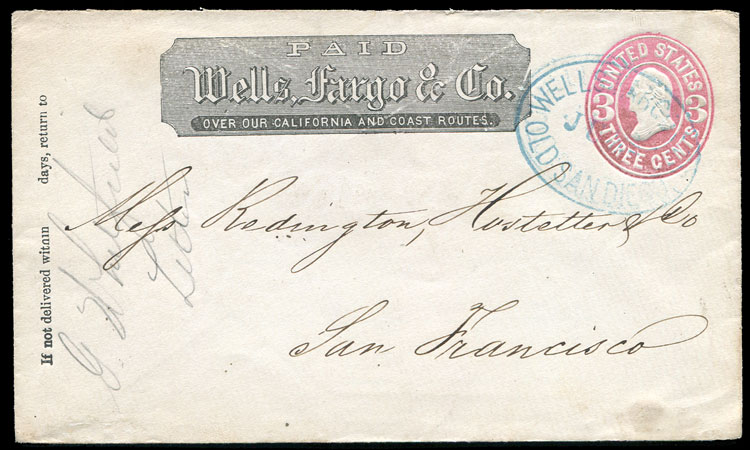 PAID
Wells, Fargo & Co.
OVER OUR CALIFORNIA AND COAST ROUTES.
UNITED STATES
3 3
THREE CENTS
WELLS
OLD SAN DIEGO
If not delivered within days, return to
Mess Redington, Hostetter & Co
San Francisco